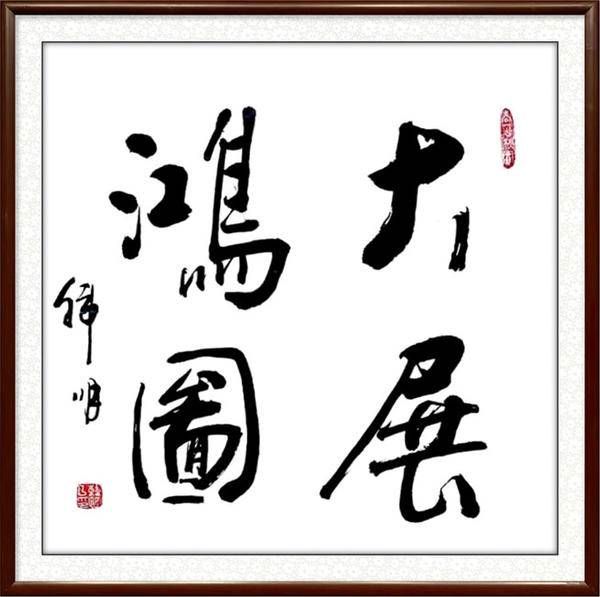 大展
鴻圖
韩明